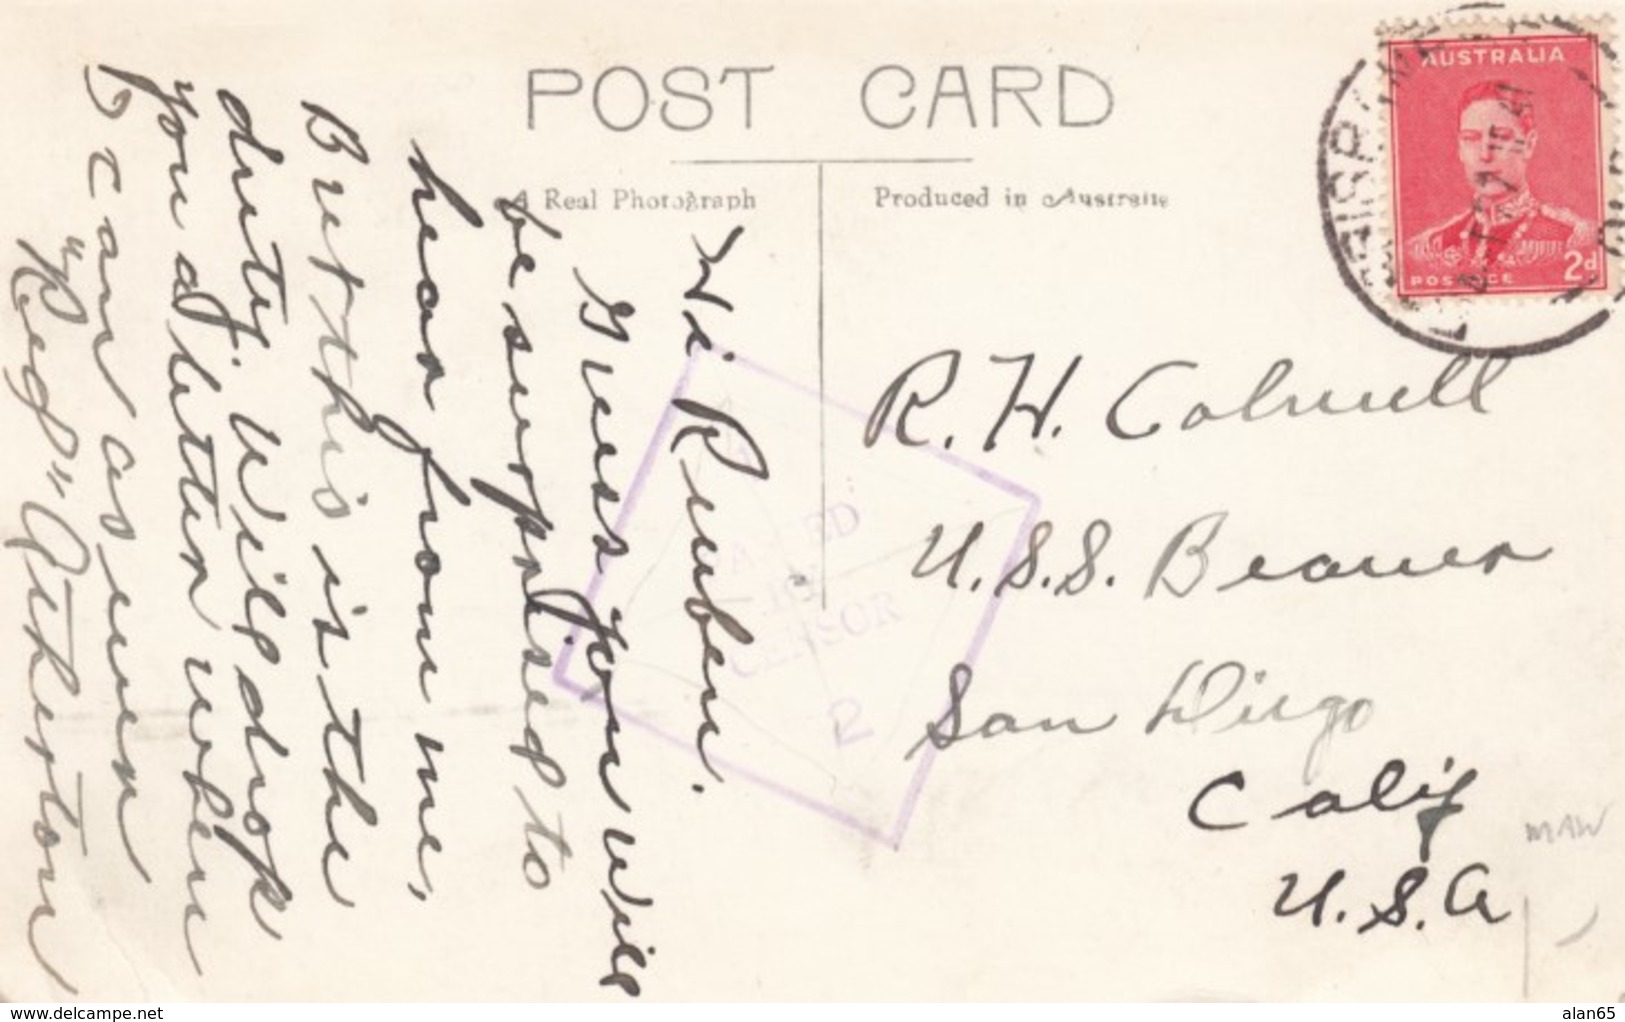 POST CARD
A Real Photograph
Produced in Australia
AUSTRALIA
POSTAGE
2d
BRISBANE
Hi Ruben.
Guess you will
be surprised to
hear from me,
But this is the
duty. Will drop
you a letter when
I can as ever
"Reg" Atherton
R. H. Colwell
U.S.S. Beaver
San Diego
Calif
U.S.A
PASSED
BY
CENSOR
2
MAW
www.delcampe.net
alan65